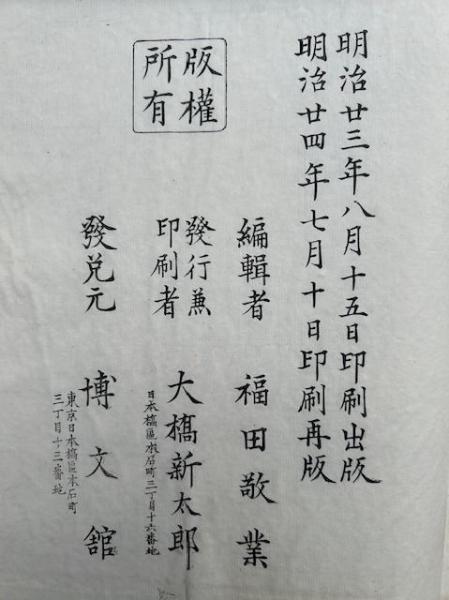 明治廿三年八月十五日印刷出版
明治廿四年七月十日印刷再版
版權
所有
編輯者 福田敬業
發行兼
印刷者
大橋新太郎
日本橋區本石町三丁目十六番地
發兌元 博文舘
東京日本橋區本石町
三丁目十三番地